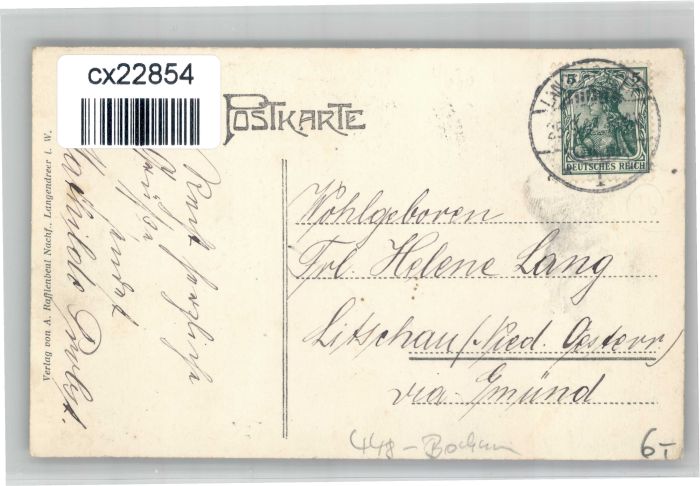 cx22854
POSTKARTE
5 5
DEUTSCHES REICH
Verlag von A. Rafflenbeul Nachf., Langendreer i. W.
herzliche
Grüße
sendet
Mathilde Probst.
Wohlgeboren
Frl. Helene Lang
Litschau (Nied. Oesterr.)
via Gmünd
448 - Bochum
6,-